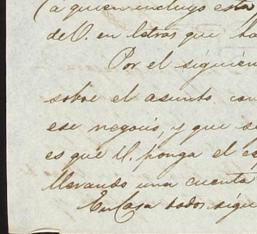 (a quien incluyo esta
de V. en letras que ha
Por el siguien
sobre el asunto con
ese negocio, y que se
es que V. ponga el co
llevando una cuenta
En Casa todos sigue